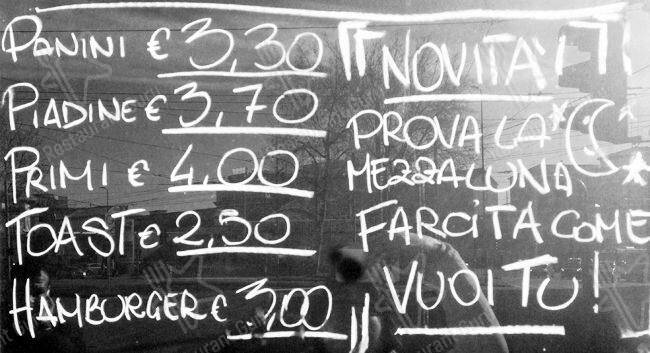 PANINI € 3,30
PIADINE € 3,70
PRIMI € 4,00
TOAST € 2,50
HAMBURGER € 3,00
"NOVITA'"
PROVA LA
MEZZALUNA
FARCITA COME
VUOI TU!